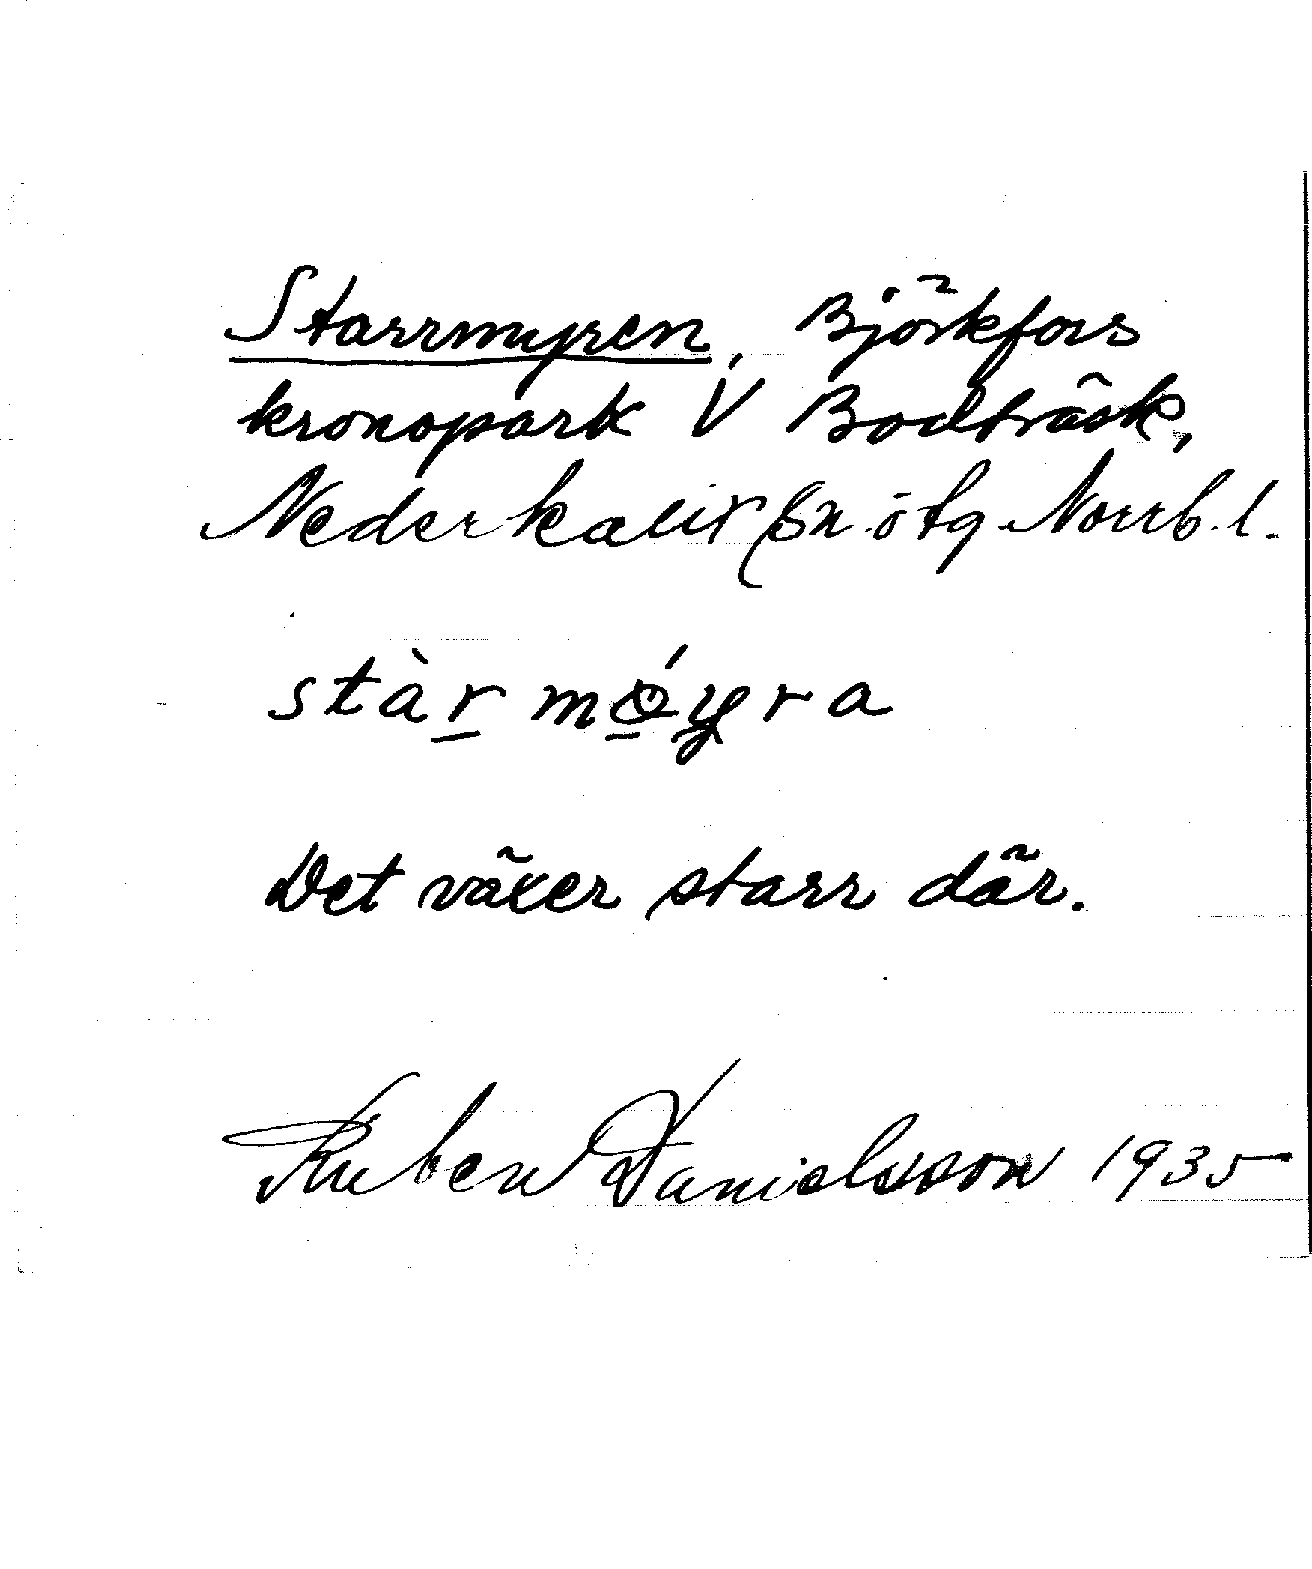 Starrmyren, Björkfors
kronopark V Bodträsk,
Nederkalix sn ötg Norrb. l.
stàr móyra
Det växer starr där.
Ruben Danielsson 1935